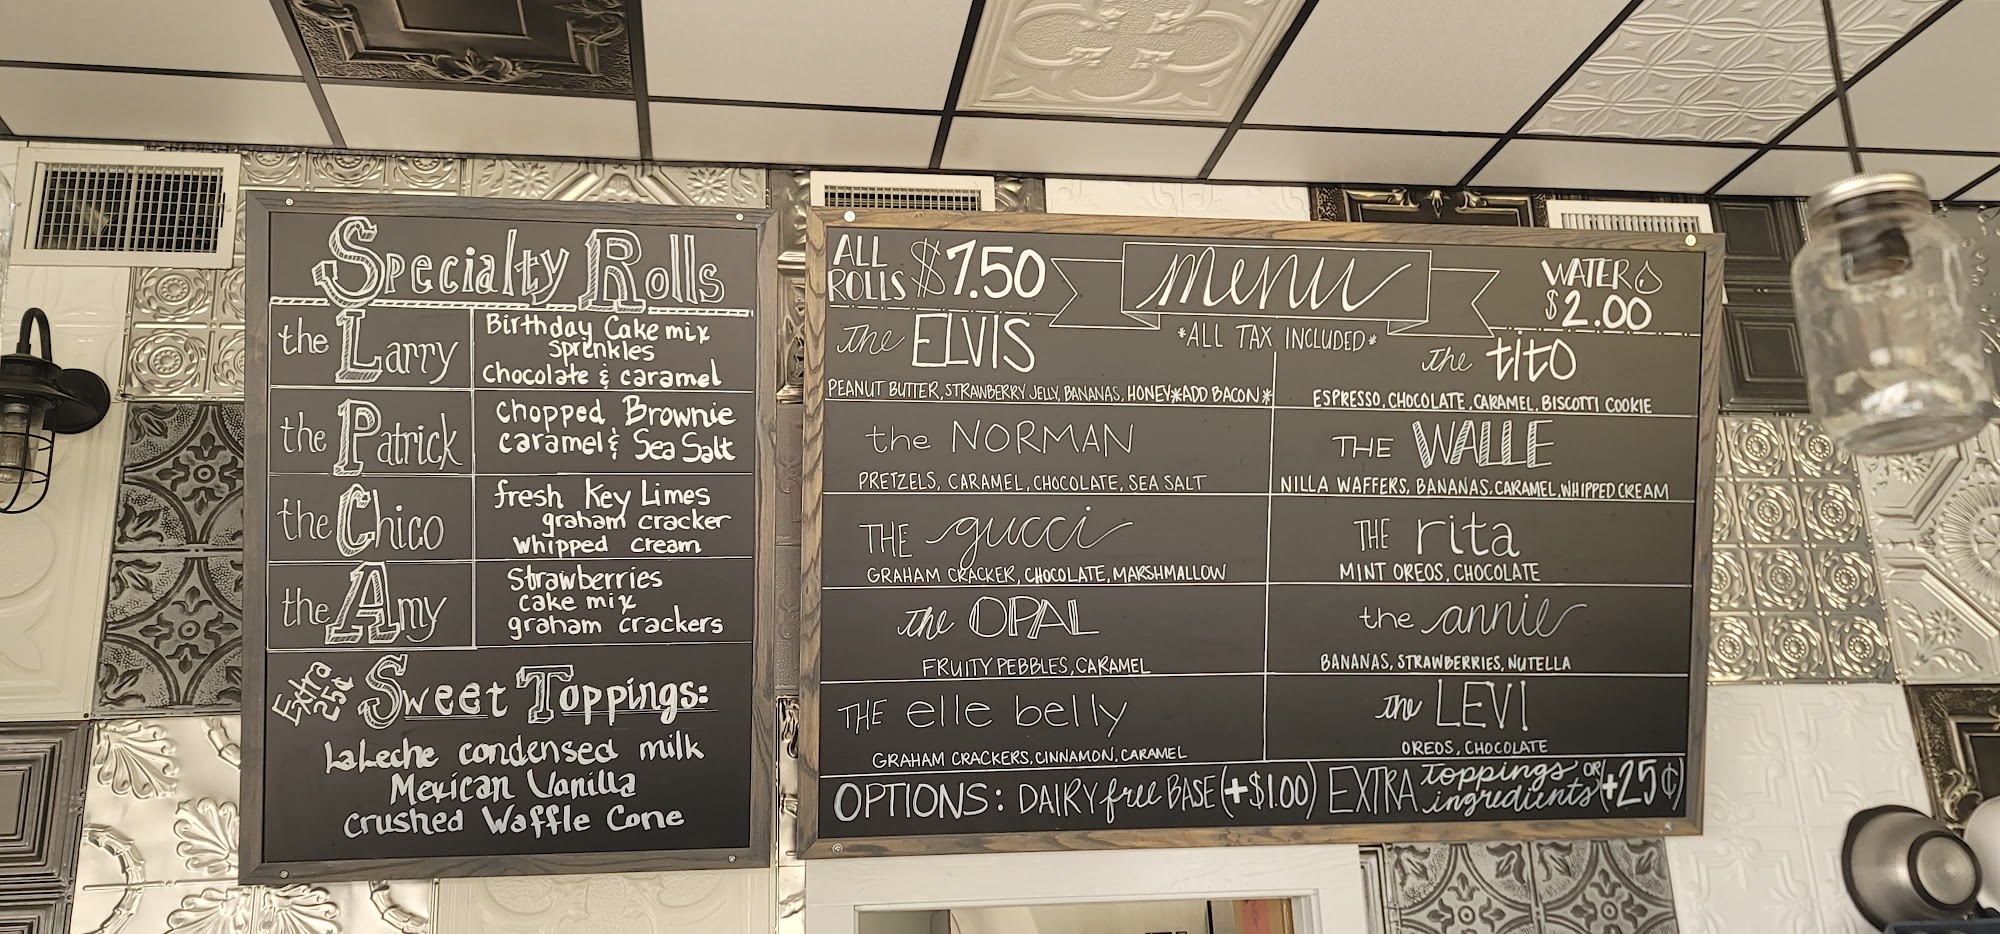 Specialty Rolls
the Larry
Birthday Cake mix
sprinkles
Chocolate & caramel
the Patrick
Chopped Brownie
caramel & Sea Salt
the Chico
fresh Key Limes
graham cracker
whipped cream
the Amy
Strawberries
cake mix
graham crackers
Extra
25¢
Sweet Toppings:
LaLeche condensed milk
Mexican Vanilla
crushed Waffle Cone
ALL
ROLLS $7.50
menu
*ALL TAX INCLUDED*
WATER
$2.00
the ELVIS
PEANUT BUTTER, STRAWBERRY JELLY, BANANAS, HONEY*ADD BACON*
the tito
ESPRESSO, CHOCOLATE, CARAMEL, BISCOTTI COOKIE
the NORMAN
PRETZELS, CARAMEL, CHOCOLATE, SEA SALT
THE WALLE
NILLA WAFFERS, BANANAS, CARAMEL, WHIPPED CREAM
THE gucci
GRAHAM CRACKER, CHOCOLATE, MARSHMALLOW
THE rita
MINT OREOS, CHOCOLATE
the OPAL
FRUITY PEBBLES, CARAMEL
the annie
BANANAS, STRAWBERRIES, NUTELLA
THE elle belly
GRAHAM CRACKERS, CINNAMON, CARAMEL
the LEVI
OREOS, CHOCOLATE
OPTIONS: DAIRY free BASE (+$1.00) EXTRA toppings OR ingredients (+25¢)